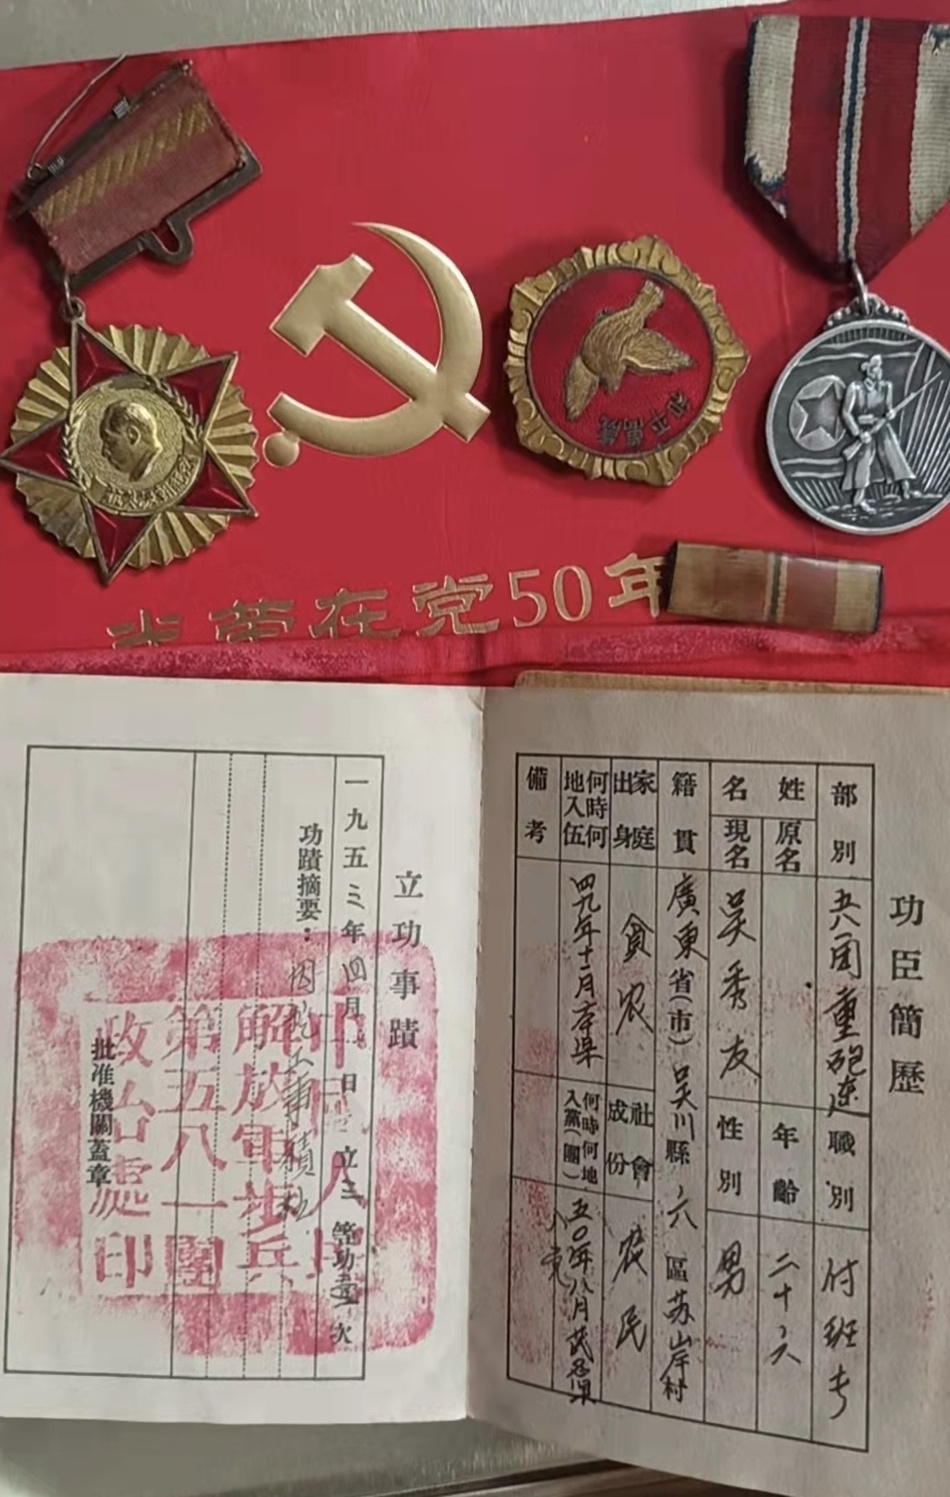 光荣在党50年
和平万歲
功臣簡歷
部別 五八一团重砲连 職別 付班长
姓名 原名 年齡 二十六
現名 吴秀友 性別 男
籍貫 廣東省(市)吴川縣六區苏岸村
家庭出身 貧农 社會成份 农民
何時何地入伍 四九年十二月 何時何地入黨(團) 五〇年八月 入党
備考
立功事蹟
一九五三年四月 日立三等功壹次
功蹟摘要:
批准機關蓋章
中国人民
解放軍步兵
第五八一團
政治處印